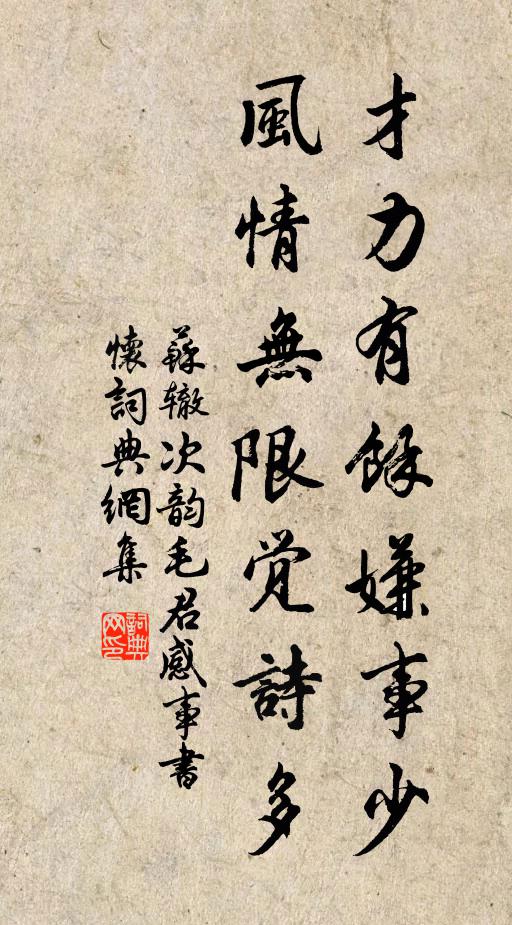 才力有餘嫌事少
風情無限觉詩多
蘇辙次韵毛君感事書
懷詞典網集
詞典网印